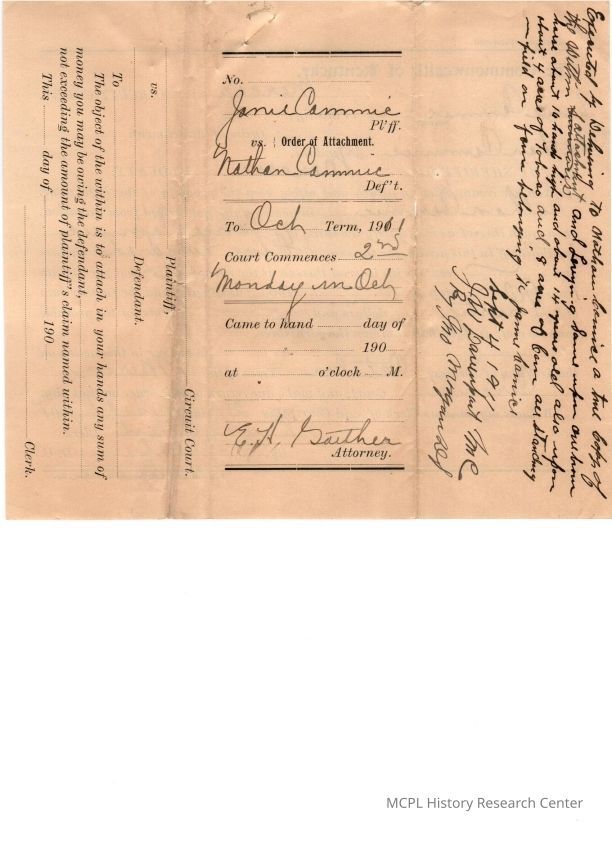 No.
Janie Cammic
Pl'ff.
vs. Order of Attachment.
Nathan Cammic
Def't.
To Oct Term, 1911
Court Commences 2nd
Monday in Oct
Came to hand day of
190
at o'clock M.
E. H. Gaither
Attorney.
Executed by Delivering to Nathan a true copy of
the within attachment and Levying same upon one
horse about 16 hands high and about 14 years old also upon
about 4 acres of Tobacco and 8 acres of Corn all standing
in field on farm belonging to
Sept 4 1911
J W Davenport
By Jno Morgan
Circuit Court.
Plaintiff,
vs.
Defendant.
To
The object of the within is to attach in your hands any sum of
money you may be owing the defendant,
not exceeding the amount of plaintiff's claim named within.
This day of 190
Clerk.
MCPL History Research Center